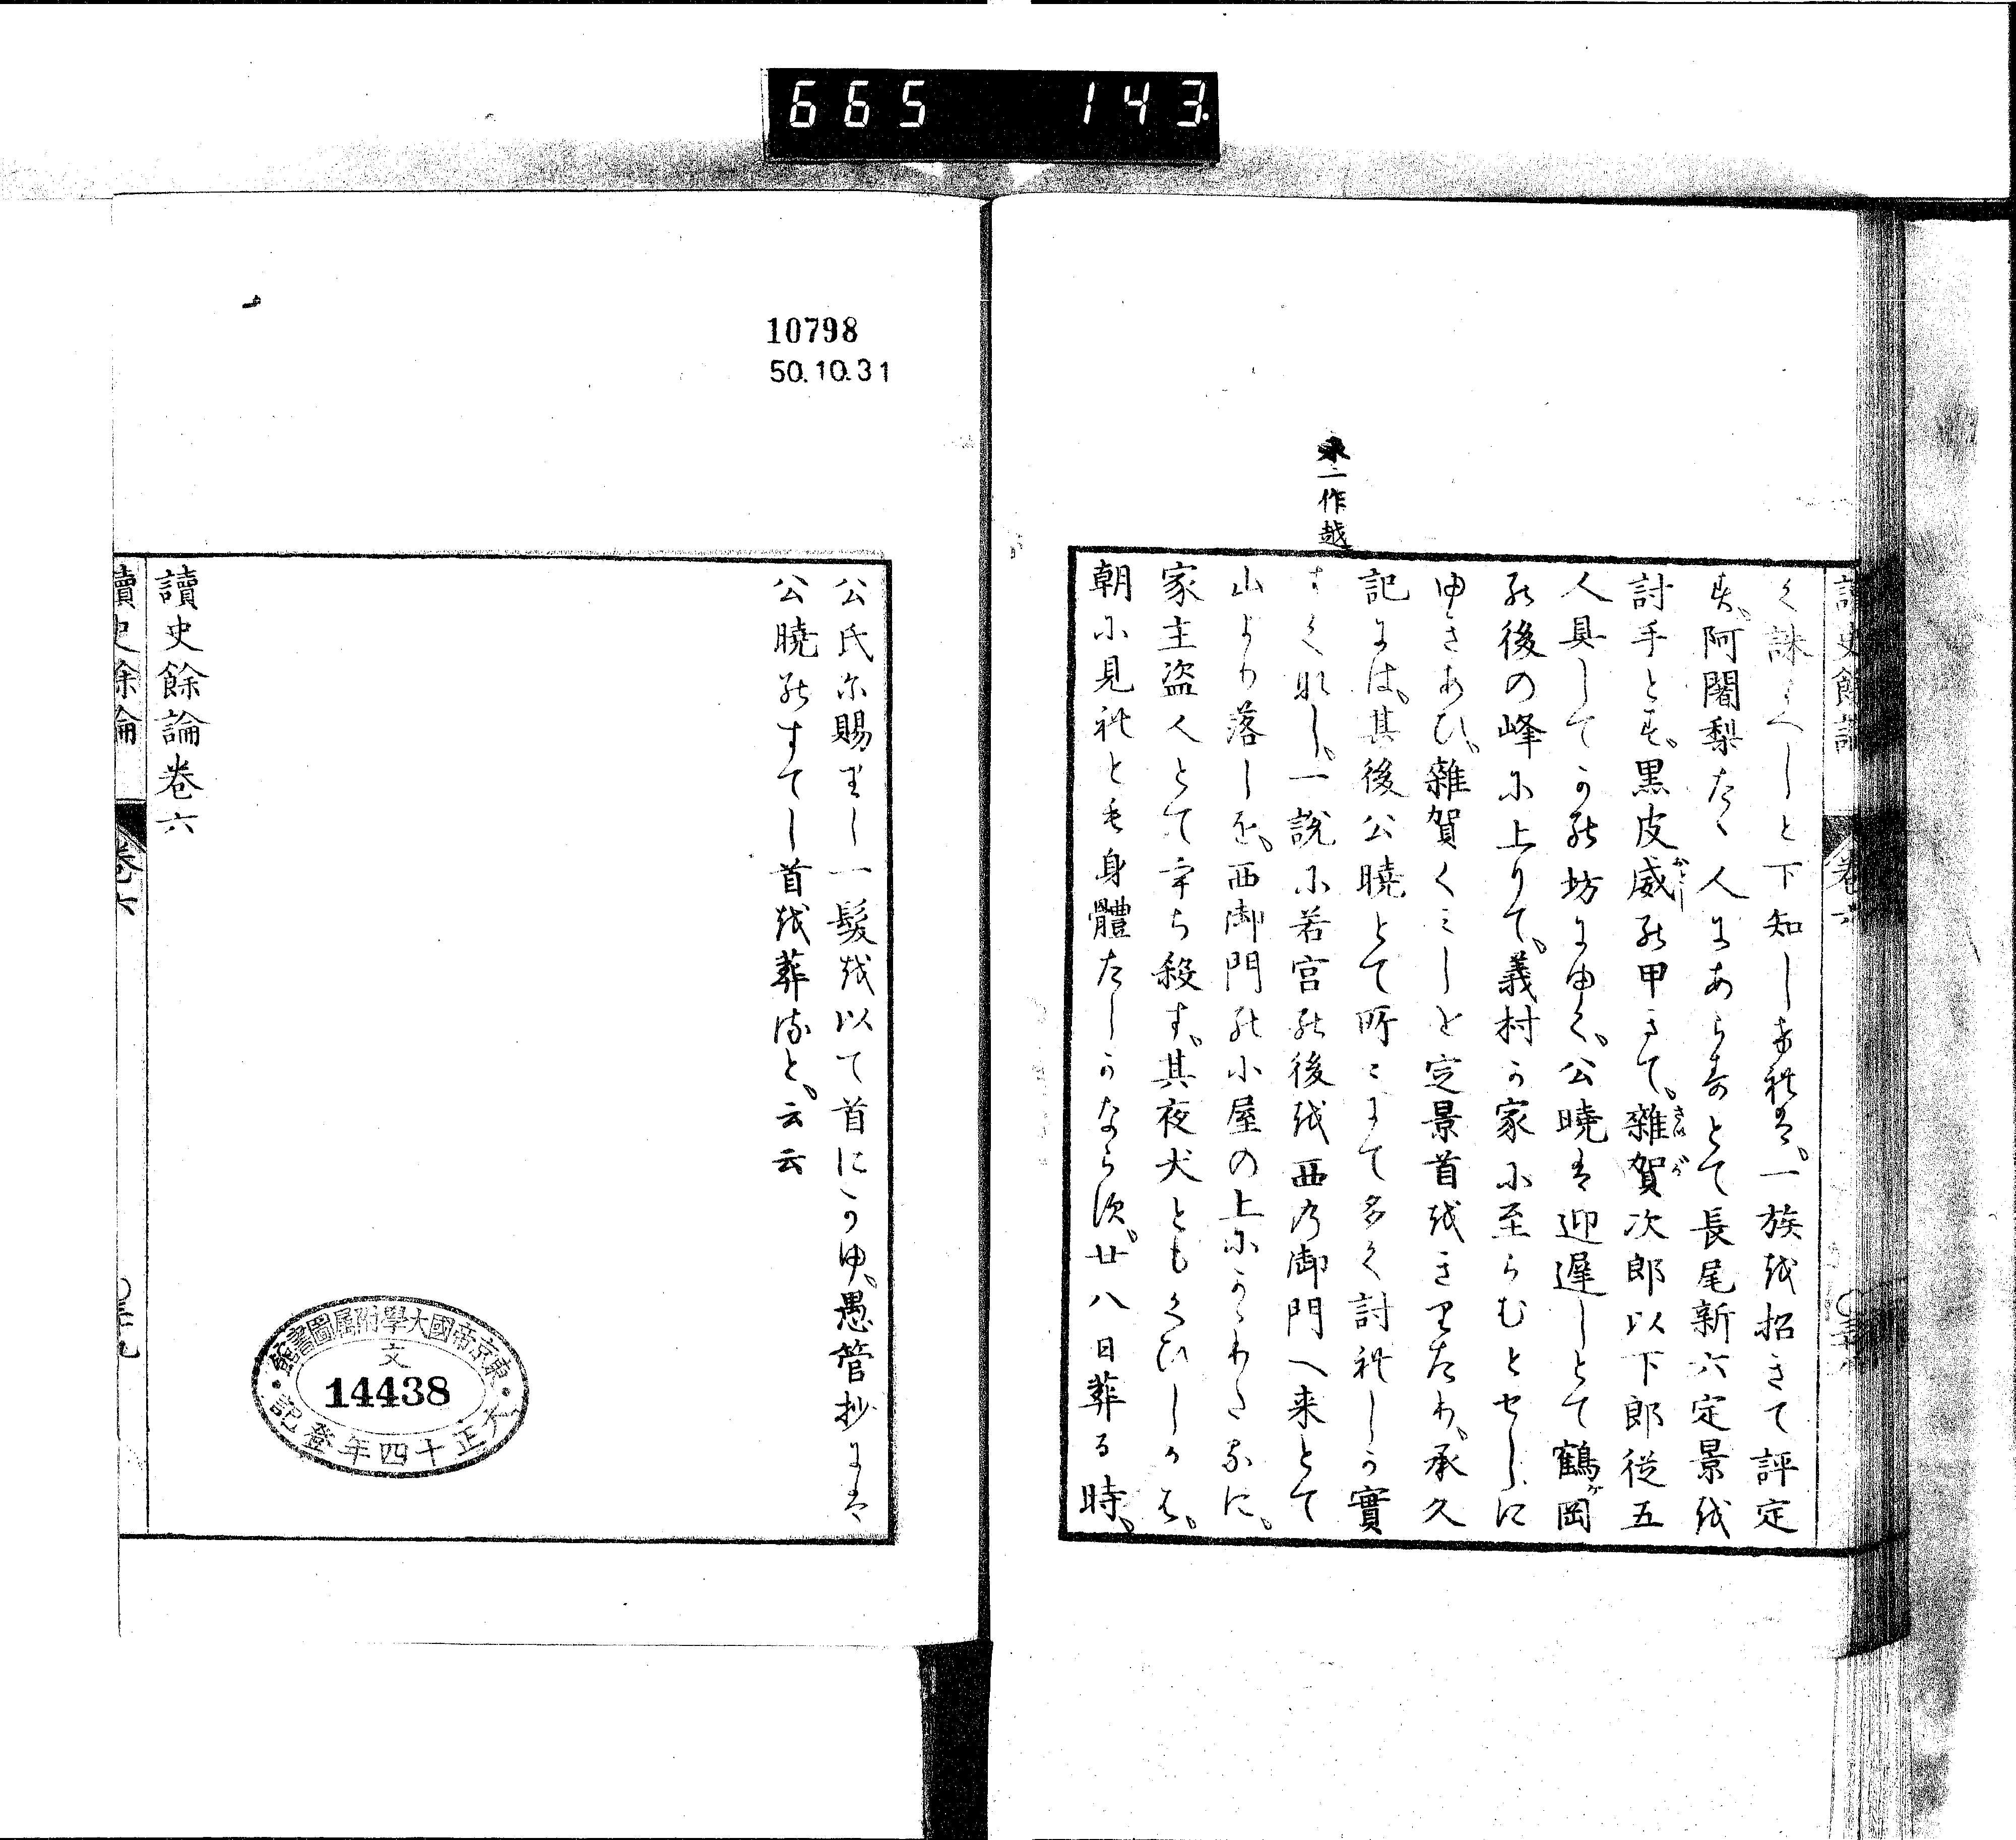 665 143.
く誅すへしと下知しけれは、一族を招きて評定
す、阿闍梨たゝ人にあらすとて長尾新六定景を
討手とす、黒皮威の甲きて、雜賀次郎以下郎従五
人具してかの坊にゆく、公曉は迎遲しとて鶴岡
の後の峰に上りて、義村か家に至らむとせしに
ゆきあひ、雜賀くミしと定景首をきりたり、承久
記には、其後公曉とて所〻にて多く討れしか實
すくなし、一説に若宮の後を西の御門へ来とて
山より落しを、西御門の小屋の上にかゝりたるに、
家主盗人とて牢ち殺す、其夜犬ともくひしかは、
朝に見れとも身體たしかならす、廿八日葬る時、
来一作越
讀史餘論
卷六
公氏に賜りし一髮を以て首にかゆ、愚管抄には
公曉のすてし首を葬ると、云云
讀史餘論卷六
讀史餘論
卷六
10798
50.10.31
東京帝國大學附属圖書館
文
14438
大正十四年登記